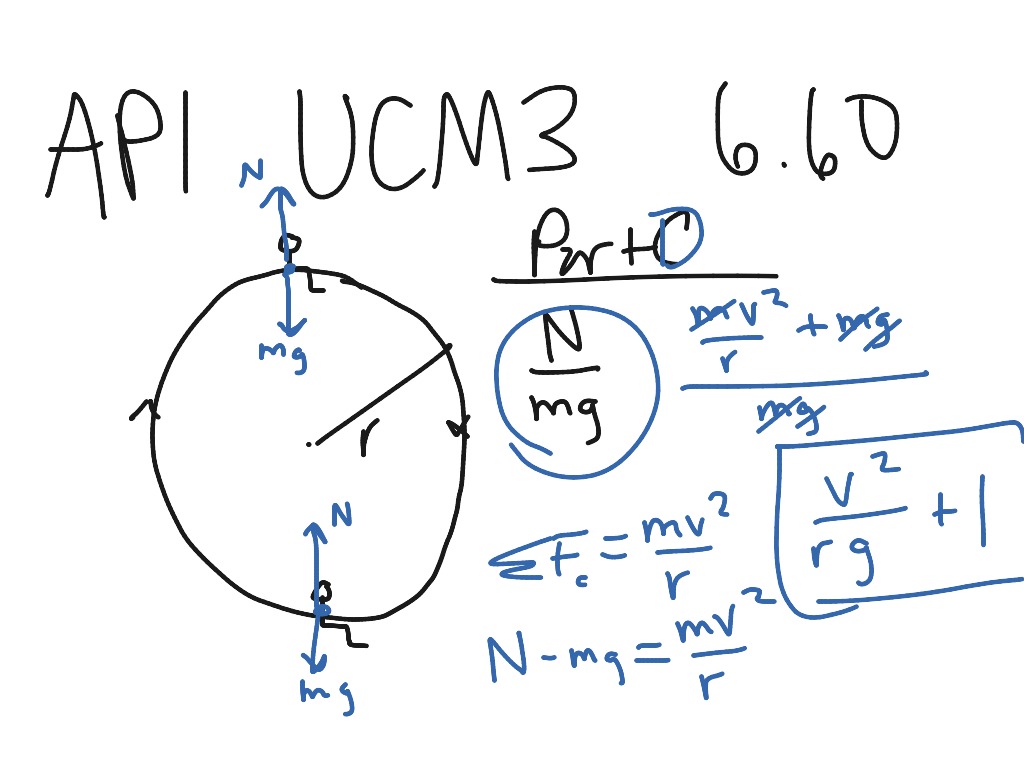 AP1 UCM3 6.60
N
mg
r
N
mg
N
mg
mv²
r
+ mg
mg
v²
rg
+ 1
= mv²
r
N - mg = mv²
r